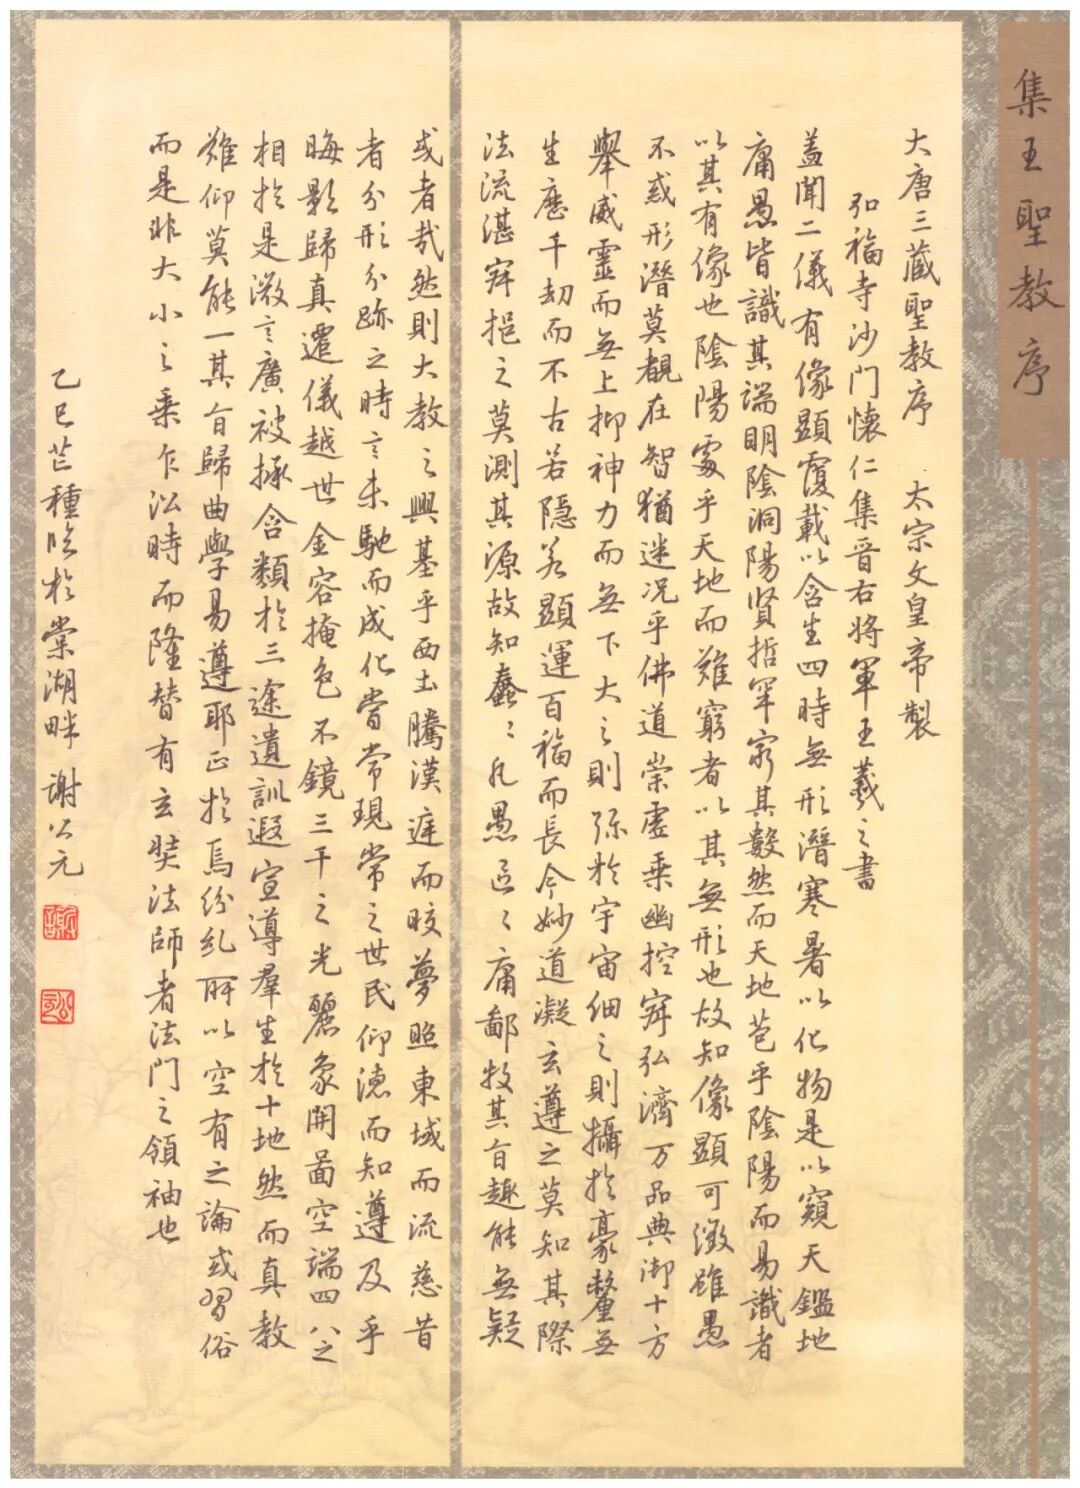 集王聖教序
大唐三藏聖教序　太宗文皇帝製
弘福寺沙門懷仁集晉右將軍王羲之書
盖聞二儀有像顯覆載以含生四時無形潛寒暑以化物是以窺天鑑地
庸愚皆識其端明陰洞陽賢哲罕窮其數然而天地苞乎陰陽而易識者
以其有像也陰陽處乎天地而難窮者以其無形也故知像顯可徵雖愚
不惑形潛莫覩在智猶迷况乎佛道崇虛乘幽控寂弘濟万品典御十方
舉威靈而無上抑神力而無下大之則弥於宇宙細之則攝於豪釐無
生歷千劫而不古若隱若顯運百福而長今妙道凝玄遵之莫知其際
法流湛寂挹之莫測其源故知蠢〻凡愚區〻庸鄙投其旨趣能無疑
或者哉然則大教之興基乎西土騰漢庭而皎夢照東域而流慈昔
者分形分跡之時言未馳而成化當常現常之世民仰德而知遵及乎
晦影歸真遷儀越世金容掩色不鏡三千之光麗象開啚空端四八之
相於是微言廣被拯含類於三途遺訓遐宣導羣生於十地然而真教
難仰莫能一其旨歸曲學易遵耶正於焉紛糺所以空有之論或習俗
而是非大小之乘乍沿時而隆替有玄奘法師者法門之領袖也
乙巳芒種臨於棠湖畔 謝公元